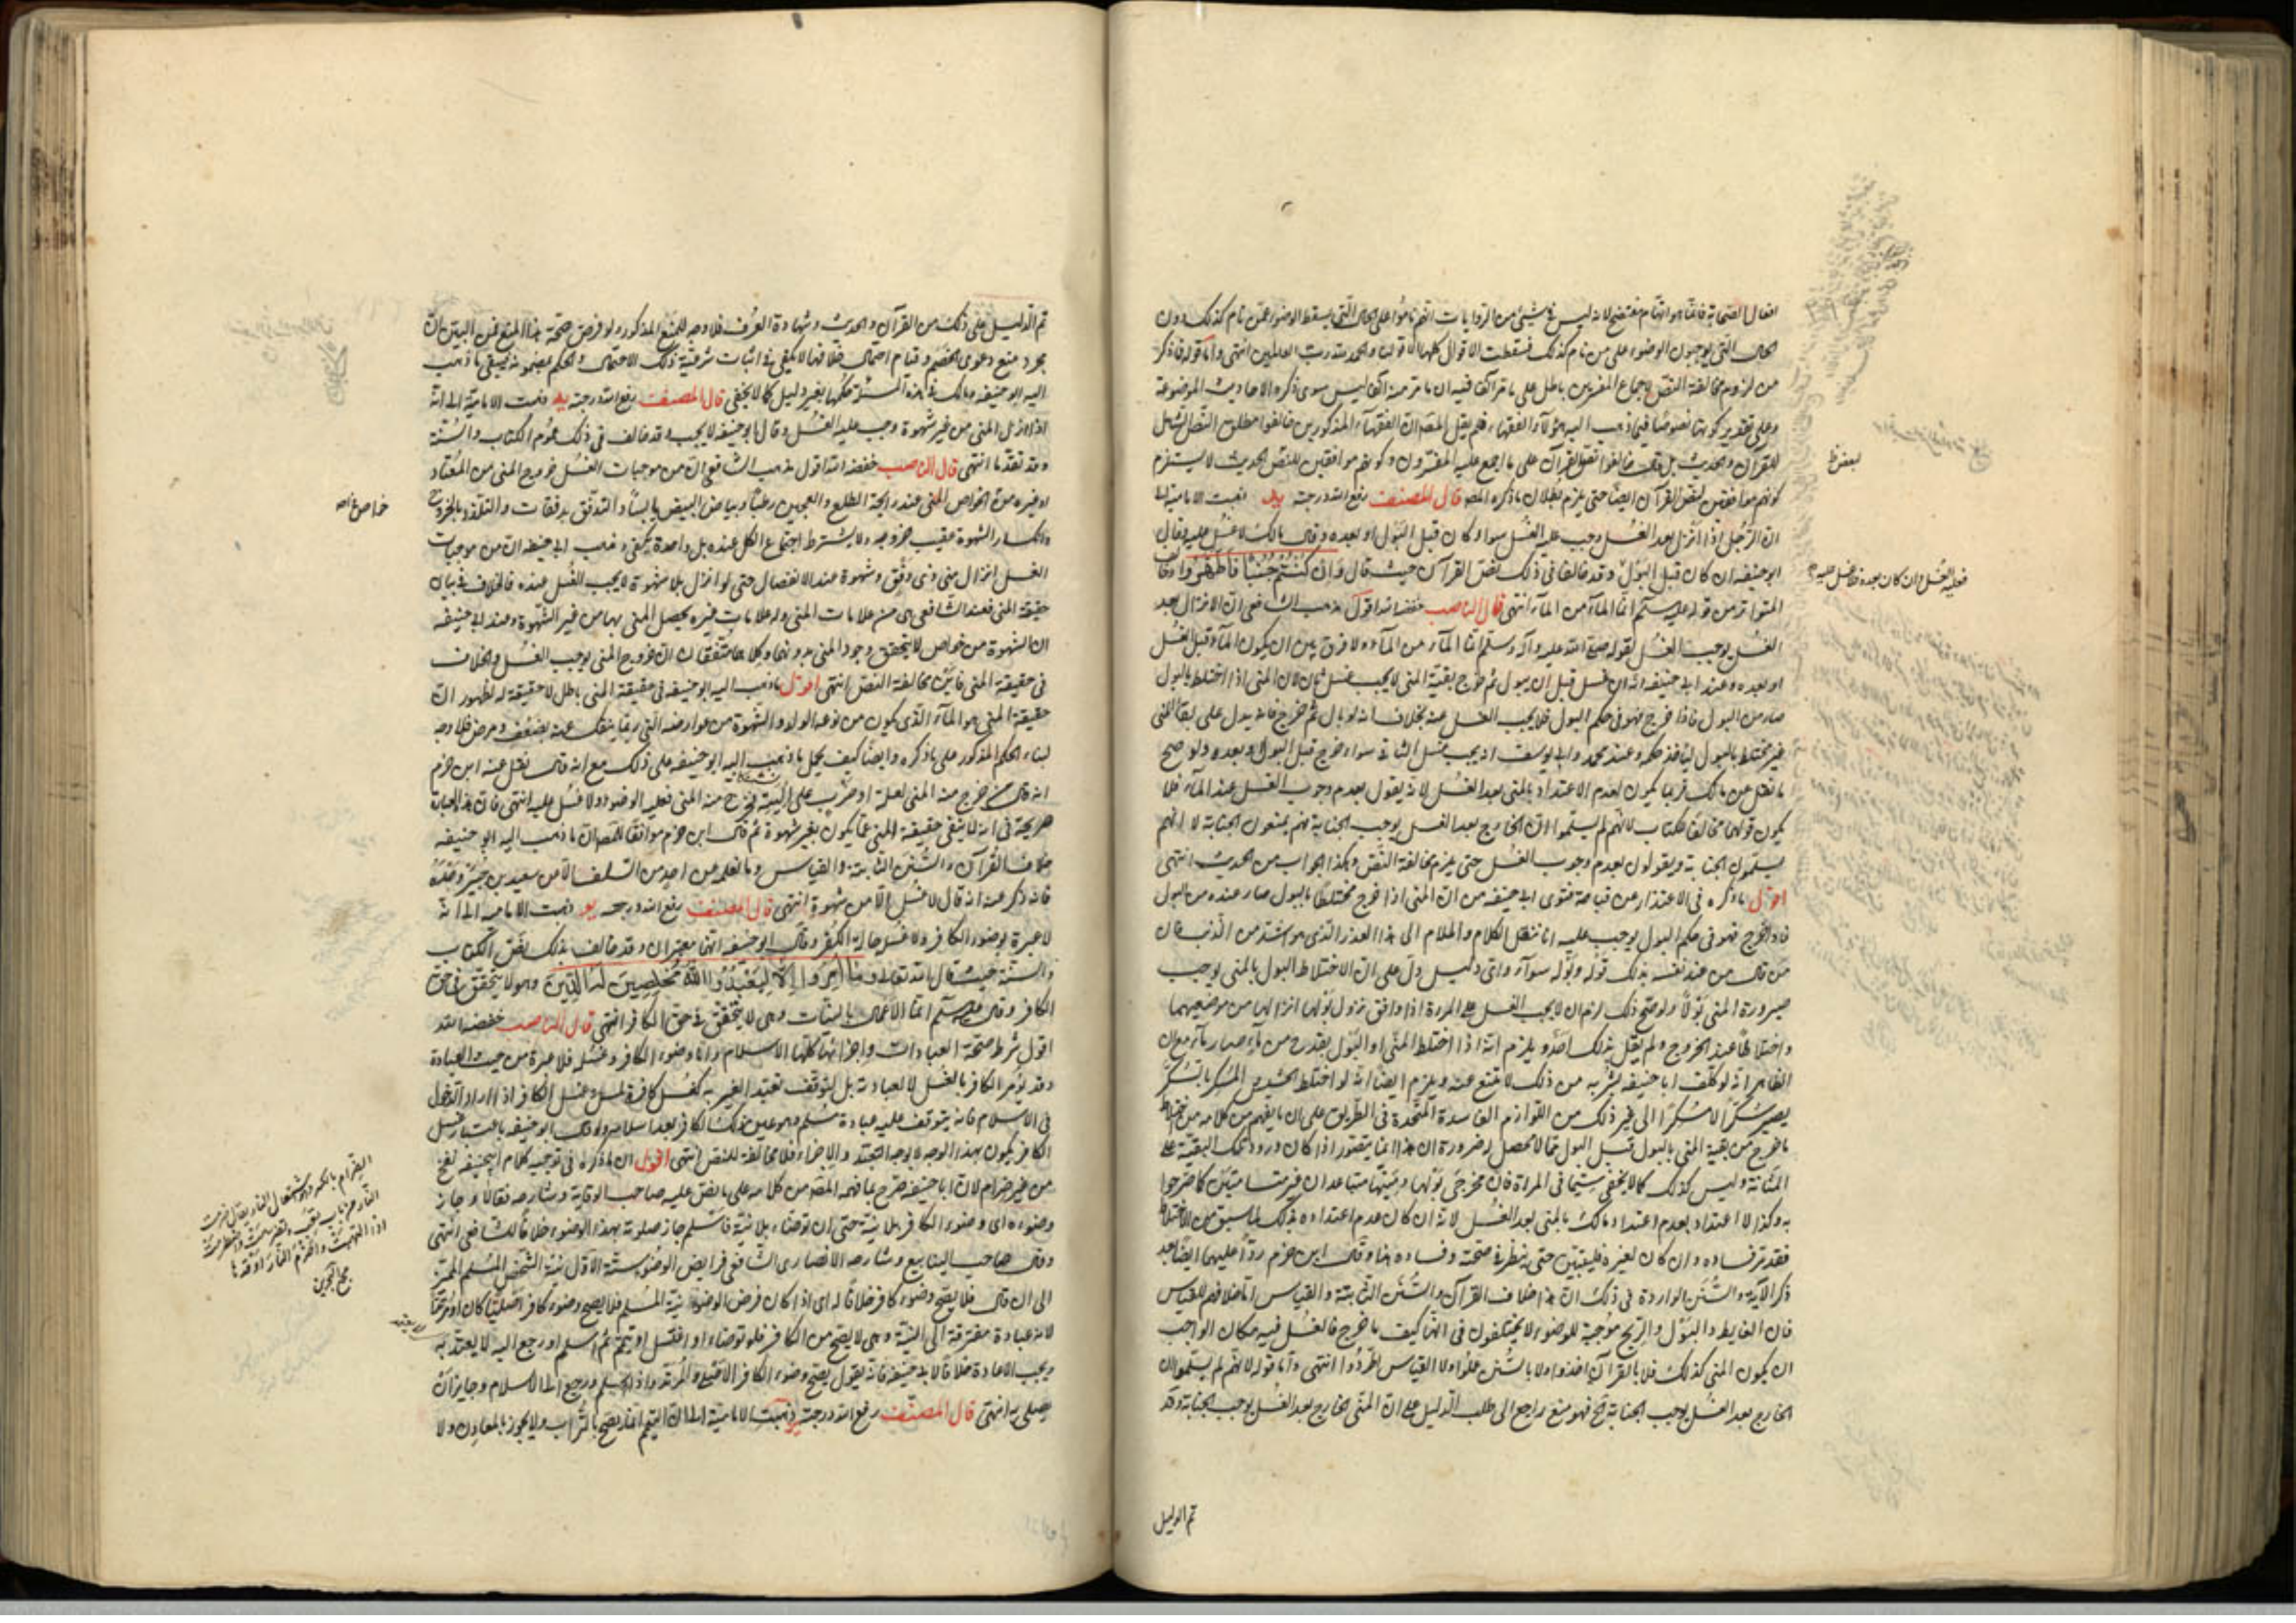 افعال الصحابة
الحال التي يوجبون الوضوء على من نام كذلك فسقطت الاقوال كلها الا قولنا والحمد لله رب العالمين انتهى واما قوله فاذكر
من لزوم مخالفة النص لاجماع المفسرين باطل على ما
وعلى تقدير كونها نصوصا فيما ذهب اليه هؤلاء الفقهاء فلم يقل المص ان الفقهاء المذكورين خالفوا مطلق النص الشامل
للقرآن والحديث بل قال خالفوا نص القرآن على ما اجمع عليه المفسرون وكونهم موافقين للنص الحديث لا يستلزم
كونهم موافقين لنص القرآن ايضا حتى يلزم بطلان ما ذكره المص قال المصنف رفع الله درجته يد ذهبت الامامية الى
ان الرجل اذا انزل بعد الغسل وجب عليه الغسل سواء كان قبل البول او بعده وقال مالك لا غسل عليه وقال
ابو حنيفة ان كان قبل البول وقد خالفا في ذلك نص القرآن حيث قال وان كنتم جنبا فاطهروا
المتواتر من قوله عليه السلم انما الماء من الماء انتهى قال الناصب خفضه الله اقول مذهب الشافعي ان الانزال بعد
الغسل يوجب الغسل لقوله صلى الله عليه وآله وسلم انما الماء من الماء ولا فرق بين ان يكون الماء قبل الغسل
او بعده وعند ابي حنيفة انه ان غسل قبل ان يبول ثم خرج بقية المني لا يجب غسل ثان لان المني اذا اختلط بالبول
صار من البول فاذا خرج فهو في حكم البول فلا يجب الغسل عنه بخلاف انه لو بال ثم خرج فانه يدل على بقاء المني
غير مختلط بالبول وعند محمد وابي يوسف انه يجب غسل الثاني سواء خرج قبل البول وبعده ولو صح
ما نقل عن مالك فربما يكون لعدم الاعتداد بالمني بعد الغسل لانه يقول بعدم وجوب الغسل عند الماء فلا
يكون قولهما مخالفا للكتاب لانهم لم يسلموا ان الخارج بعد الغسل يوجب الجنابة فهم يمنعون الجنابة لا انهم
يسلمون الجنابة ويقولون بعدم وجوب الغسل حتى يلزم مخالفة النص وكذا الجواب من الحديث انتهى
اقول ما ذكره في الاعتذار عن قباحة فتوى ابي حنيفة من ان المني اذا خرج مختلطا بالبول صار عنده من البول
فاذا خرج فهو في حكم البول يوجب عليه انا ننقل الكلام والملام الى هذا العذر الذي هو اشد من الذنب فان
من قال من عند نفسه بذلك قوله وبوله سواء واي دليل دل على ان الاختلاط البول بالمني يوجب
صيرورة المني بولا ولو صح ذلك لزم ان لا يجب الغسل على المرءة اذا وافق نزول بولها انزالها من موضعيهما
واختلاطا عند الخروج ولم يقل بذلك احد ويلزم انه اذا اختلط المني او البول بقدح من ماء صار ماء مع ان
الظاهر انه لو كلف ابا حنيفة بشربه من ذلك لامتنع عنه ويلزم ايضا انه لو اختلط الحشيش المسكر بالسكر
يصير سكرا لا مسكرا الى غير ذلك من اللوازم الفاسدة المتحدة في الطريق على ان ما يفهم من كلامه من اختلاط
ما خرج من بقية المني بالبول قبل البول مما لا محصل له ضرورة ان هذا انما يتصور اذا كان ورود تلك البقية على
المثانة وليس كذلك كما لا يخفى سيما في المراة فان مخرجي بولها ومنيها متباعدان غير متماسين كما صرحوا
به وكذا لا اعتداد بعدم اعتداد مالك بالمني بعد الغسل لانه ان كان عدم اعتداده بذلك لما سبق من الاختلاط
فقد مر فساده وان كان لغيره فليبين حتى ينظر في صحته وفساده هذا وقال ابن حزم ردا عليهما ايضا بعد
ذكر الآية والسنن الواردة في ذلك ان هذا خلاف القرآن والسنن الثابتة والقياس اما خلافهم للقياس
فان الغايط والبول والريح موجبة للوضوء لا يختلفون في انها كيف ما خرج فالغسل فيه مكان الواجب
ان يكون المني كذلك فلا بالقرآن اخذوا ولا بالسنن عملوا ولا القياس طردوا انتهى واما قوله لانهم لم يسلموا ان
الخارج بعد الغسل يوجب الجنابة فهو منع راجع الى طلب الدليل على ان المني الخارج بعد الغسل يوجب الجنابة وقد
تم الدليل
فعليه الغسل وان كان بعده فلا غسل عليه
تم الدليل على ذلك من القرآن والحديث وشهادة العرف فلا وجه للمنع المذكور ولو فرض صحة هذا المنع فمن البين ان
مجرد منع دعوى الخصم وقيام احتمال خلافها لا يكفي في اثبات شرعية ذلك الاحتمال والحكم بمضمونه فيبقى ما ذهب
اليه ابو حنيفة ومالك في هذه المسئلة حكما بغير دليل كما لا يخفى قال المصنف رفع الله درجته يه ذهبت الامامية الى انه
اذا نزل المني من غير شهوة وجب عليه الغسل وقال ابو حنيفة لا يجب وقد خالف في ذلك عموم الكتاب والسنة
وقد تقدما انتهى قال الناصب خفضه الله اقول مذهب الشافعي ان من موجبات الغسل خروج المني من المعتاد
او غيره من الخواص المني عندنا رائحة الطلع والعجين رطبا وبياض البيض يابسا والتدفق بدفقات والتلذذ بالخروج
وانكسار الشهوة عقيب خروجه ولا يشترط اجتماع الكل عنده بل واحدة يكفي وذهب ابي حنيفة ان من موجبات
الغسل انزال مني ذي دفق وشهوة عند الانفصال حتى لو انزل بلا شهوة لا يجب الغسل عنده فالخلاف في بيان
حقيقة المني فعند الشافعي هي من علامات المني وله علامات غيره يحصل المني بها من غير الشهوة وعند ابي حنيفة
ان الشهوة من خواص لا يتحقق وجود المني بدونها وكلاهما متفقان ان خروج المني يوجب الغسل والخلاف
في حقيقة المني فاين مخالفة النص انتهى اقول ما ذهب اليه ابو حنيفة في حقيقة المني باطل لا حقيقة له لظهور ان
حقيقة المني هو الماء الذي يكون من نوعه الولد والشهوة من عوارضه التي ربما ينفك عنه لضعف ومرض فلا وجه
لبناء الحكم المذكور على ما ذكره وايضا كيف يحمل ما ذهب اليه ابو حنيفة على ذلك مع انه قال نقل عنه ابن حزم
انه قال من خرج منه المني لعلة او ضرب على اليته فخرج منه المني فعليه الوضوء ولا غسل عليه انتهى فان هذه العبارة
صريحة في انه لا ينفى حقيقة المني عما يكون بغير شهوة ثم قال ابن حزم موافقا للمص ان ما ذهب اليه ابو حنيفة
خلاف القرآن والسنن الثابتة والقياس وما نعلم عن احد من السلف الا من سعيد بن جبير وحده
فانه ذكر عنه انه قال لا غسل الا من شهوة انتهى قال المصنف رفع الله درجته يو ذهبت الامامية الى انه
لا عبرة بوضوء الكافر ولا غسل حالة الكفر وقال ابو حنيفة انهما معتبران وقد خالف بذلك نص الكتاب
والسنة حيث قال الله تعالى وما امروا الا ليعبدوا الله مخلصين له الدين وهو لا يتحقق في حق
الكافر وقال عليه السلم انما الاعمال بالنيات وهي لا يتحقق في حق الكافر انتهى قال الناصب خفضه الله
اقول شرط صحة العبادات واجزائها كلها الاسلام واما وضوء الكافر وغسله فلا عبرة من حيث العبادة
وقد يؤمر الكافر بالغسل لا لعبادته بل لتوقف تعبد الغير به كغسل كافرة لمسلم وغسل الكافر اذا اراد الدخول
في الاسلام فانه يتوقف عليه عبادة مسلم
الكافر يكون بهذا الوجه لا بوجه التعبد والاجزاء فلا مخالفة للنص انتهى اقول ان ما ذكره في توجيه كلام ابي حنيفة نفخ
من غير ضرام لان ابا حنيفة صرح بما فهمه المص من كلامه على ما نص عليه صاحب الوقاية وشارحه فقالا وجاز
وضوءه اي وضوء الكافر بلا نية حتى ان توضاء بلا نية فاسلم جاز صلوته بهذا الوضوء خلافا للشافعي انتهى
وقال صاحب الينابيع وشارحه الانصاري الشافعي فرايض الوضوء ستة الاول نية الشخص المسلم المميز
الى ان قال فلا يصح وضوء كافر خلافا له اي اذا كان فرض الوضوء نية المسلم فلا يصح وضوء كافر اصليا كان او مرتدا
لانه عبادة مفتقرة الى النية وهي لا يصح من الكافر فلو توضاء او اغتسل او تيمم ثم اسلم او رجع اليه لا يعتد به
ويجب الاعادة خلافا لابي حنيفة فانه يقول يصح وضوء الكافر الاصلي والمرتد واذا اسلم ورجع الى الاسلام وجاز ان
يصلى به انتهى قال المصنف رفع الله درجته يز ذهبت الامامية الى ان التيمم انما يصح بالتراب ولا يجوز بالمعادن ولا
الضرام بالكسر اشتعال النار يقال ضرمت
النار
اذا التهبت واضرم النار اوقدها
مجمع البحرين